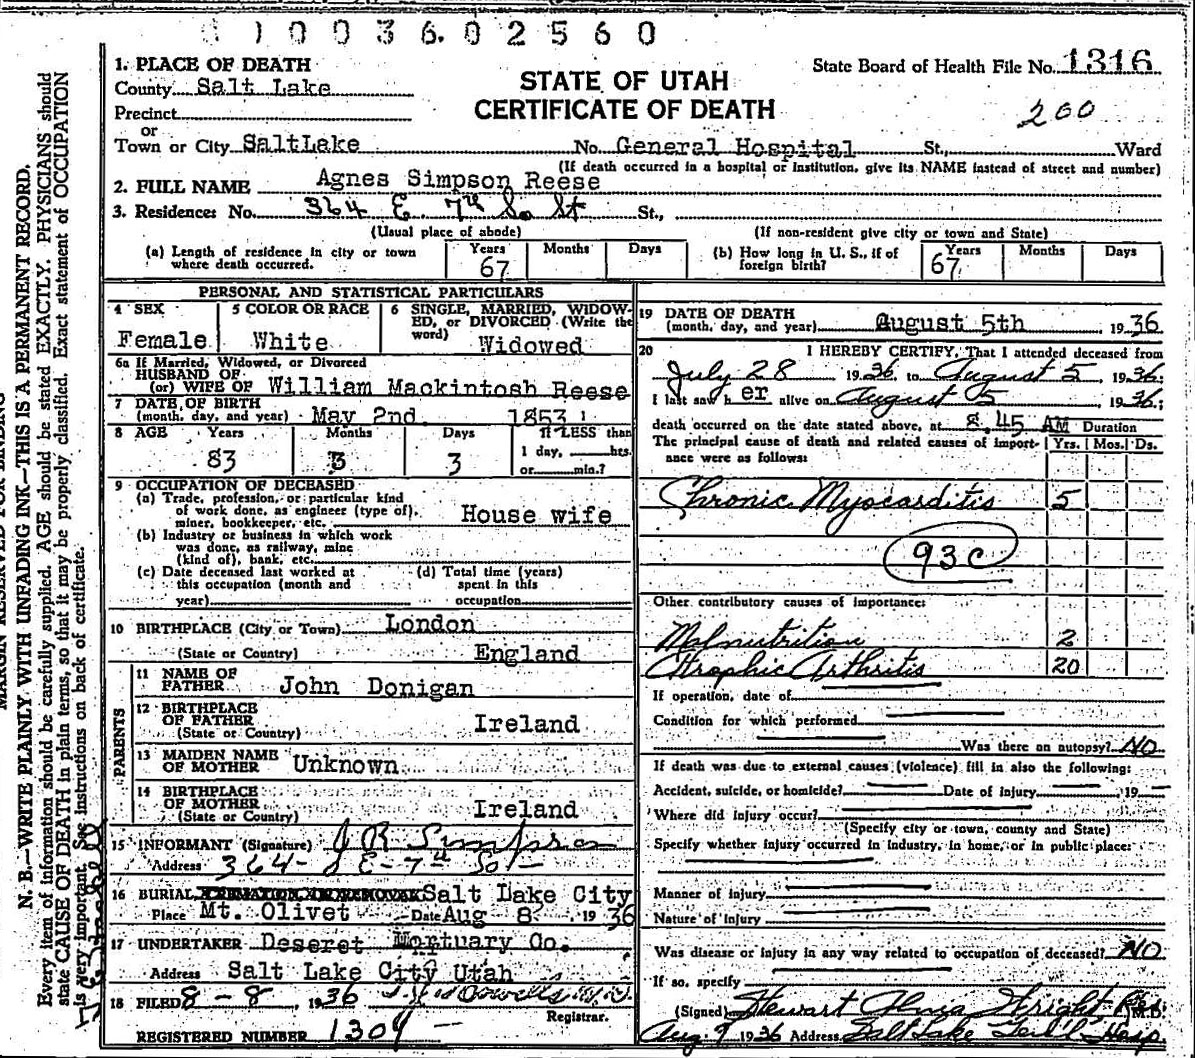 0 1 0 0 3 6 0 2 5 6 0
1. PLACE OF DEATH
County Salt Lake
Precinct
or
Town or City SaltLake
STATE OF UTAH
CERTIFICATE OF DEATH
State Board of Health File No. 1316
200
No. General Hospital St., Ward
(If death occurred in a hospital or institution, give its NAME instead of street and number)
2. FULL NAME Agnes Simpson Reese
3. Residence: No. 364 E. 7th So St St.,
(Usual place of abode) (If non-resident give city or town and State)
(a) Length of residence in city or town where death occurred. Years 67 Months Days
(b) How long in U. S., if of foreign birth? Years 67 Months Days
PERSONAL AND STATISTICAL PARTICULARS
4 SEX Female
5 COLOR OR RACE White
6 SINGLE, MARRIED, WIDOWED, or DIVORCED (Write the word) Widowed
6a If Married, Widowed, or Divorced
HUSBAND OF
(or) WIFE OF William Mackintosh Reese
7 DATE OF BIRTH
(month, day, and year) May 2nd 1853
8 AGE Years 83 Months 3 Days 3 If LESS than 1 day, hrs. or min.?
9 OCCUPATION OF DECEASED
(a) Trade, profession, or particular kind
of work done, as engineer (type of),
miner, bookkeeper, etc. House wife
(b) Industry or business in which work
was done, as railway, mine
(kind of), bank, etc.
(c) Date deceased last worked at
this occupation (month and
year)
(d) Total time (years)
spent in this
occupation
10 BIRTHPLACE (City or Town) London
(State or Country) England
PARENTS
11 NAME OF
FATHER John Donigan
12 BIRTHPLACE
OF FATHER
(State or Country) Ireland
13 MAIDEN NAME
OF MOTHER Unknown
14 BIRTHPLACE
OF MOTHER
(State or Country) Ireland
15 INFORMANT (Signature) J R Simpson
Address 364 E-7th So
16 BURIAL, CREMATION, OR REMOVAL Salt Lake City
Place Mt. Olivet Date Aug 8 1936
17 UNDERTAKER Deseret Mortuary Co.
Address Salt Lake City Utah
18 FILED 8-8, 1936
Registrar.
REGISTERED NUMBER 1309
19 DATE OF DEATH
(month, day, and year) August 5th 1936
20 I HEREBY CERTIFY, That I attended deceased from
July 28 1936, to August 5, 1936
I last saw her alive on August 5 1936;
death occurred on the date stated above, at 8.45 AM Duration
The principal cause of death and related causes of importance were as follows: Yrs. Mos. Ds.
Chronic Myocarditis 5
93c
Other contributory causes of importance:
Malnutrition 2
Atrophic Arthritis 20
If operation, date of
Condition for which performed
Was there an autopsy? NO
If death was due to external causes (violence) fill in also the following:
Accident, suicide, or homicide? Date of injury 19
Where did injury occur?
(Specify city or town, county and State)
Specify whether injury occurred in industry, in home, or in public place:
Manner of injury
Nature of injury
Was disease or injury in any way related to occupation of deceased? NO
If so, specify
(Signed) Stewart Alma Wright M.D.
Aug 9 1936 Address Salt Lake Gen'l Hosp
MARGIN RESERVED FOR BINDING
N. B.—WRITE PLAINLY WITH UNFADING INK—THIS IS A PERMANENT RECORD.
Every item of information should be carefully supplied. AGE should be stated EXACTLY. PHYSICIANS should
state CAUSE OF DEATH in plain terms, so that it may be properly classified. Exact statement of OCCUPATION
is very important. See instructions on back of certificate.